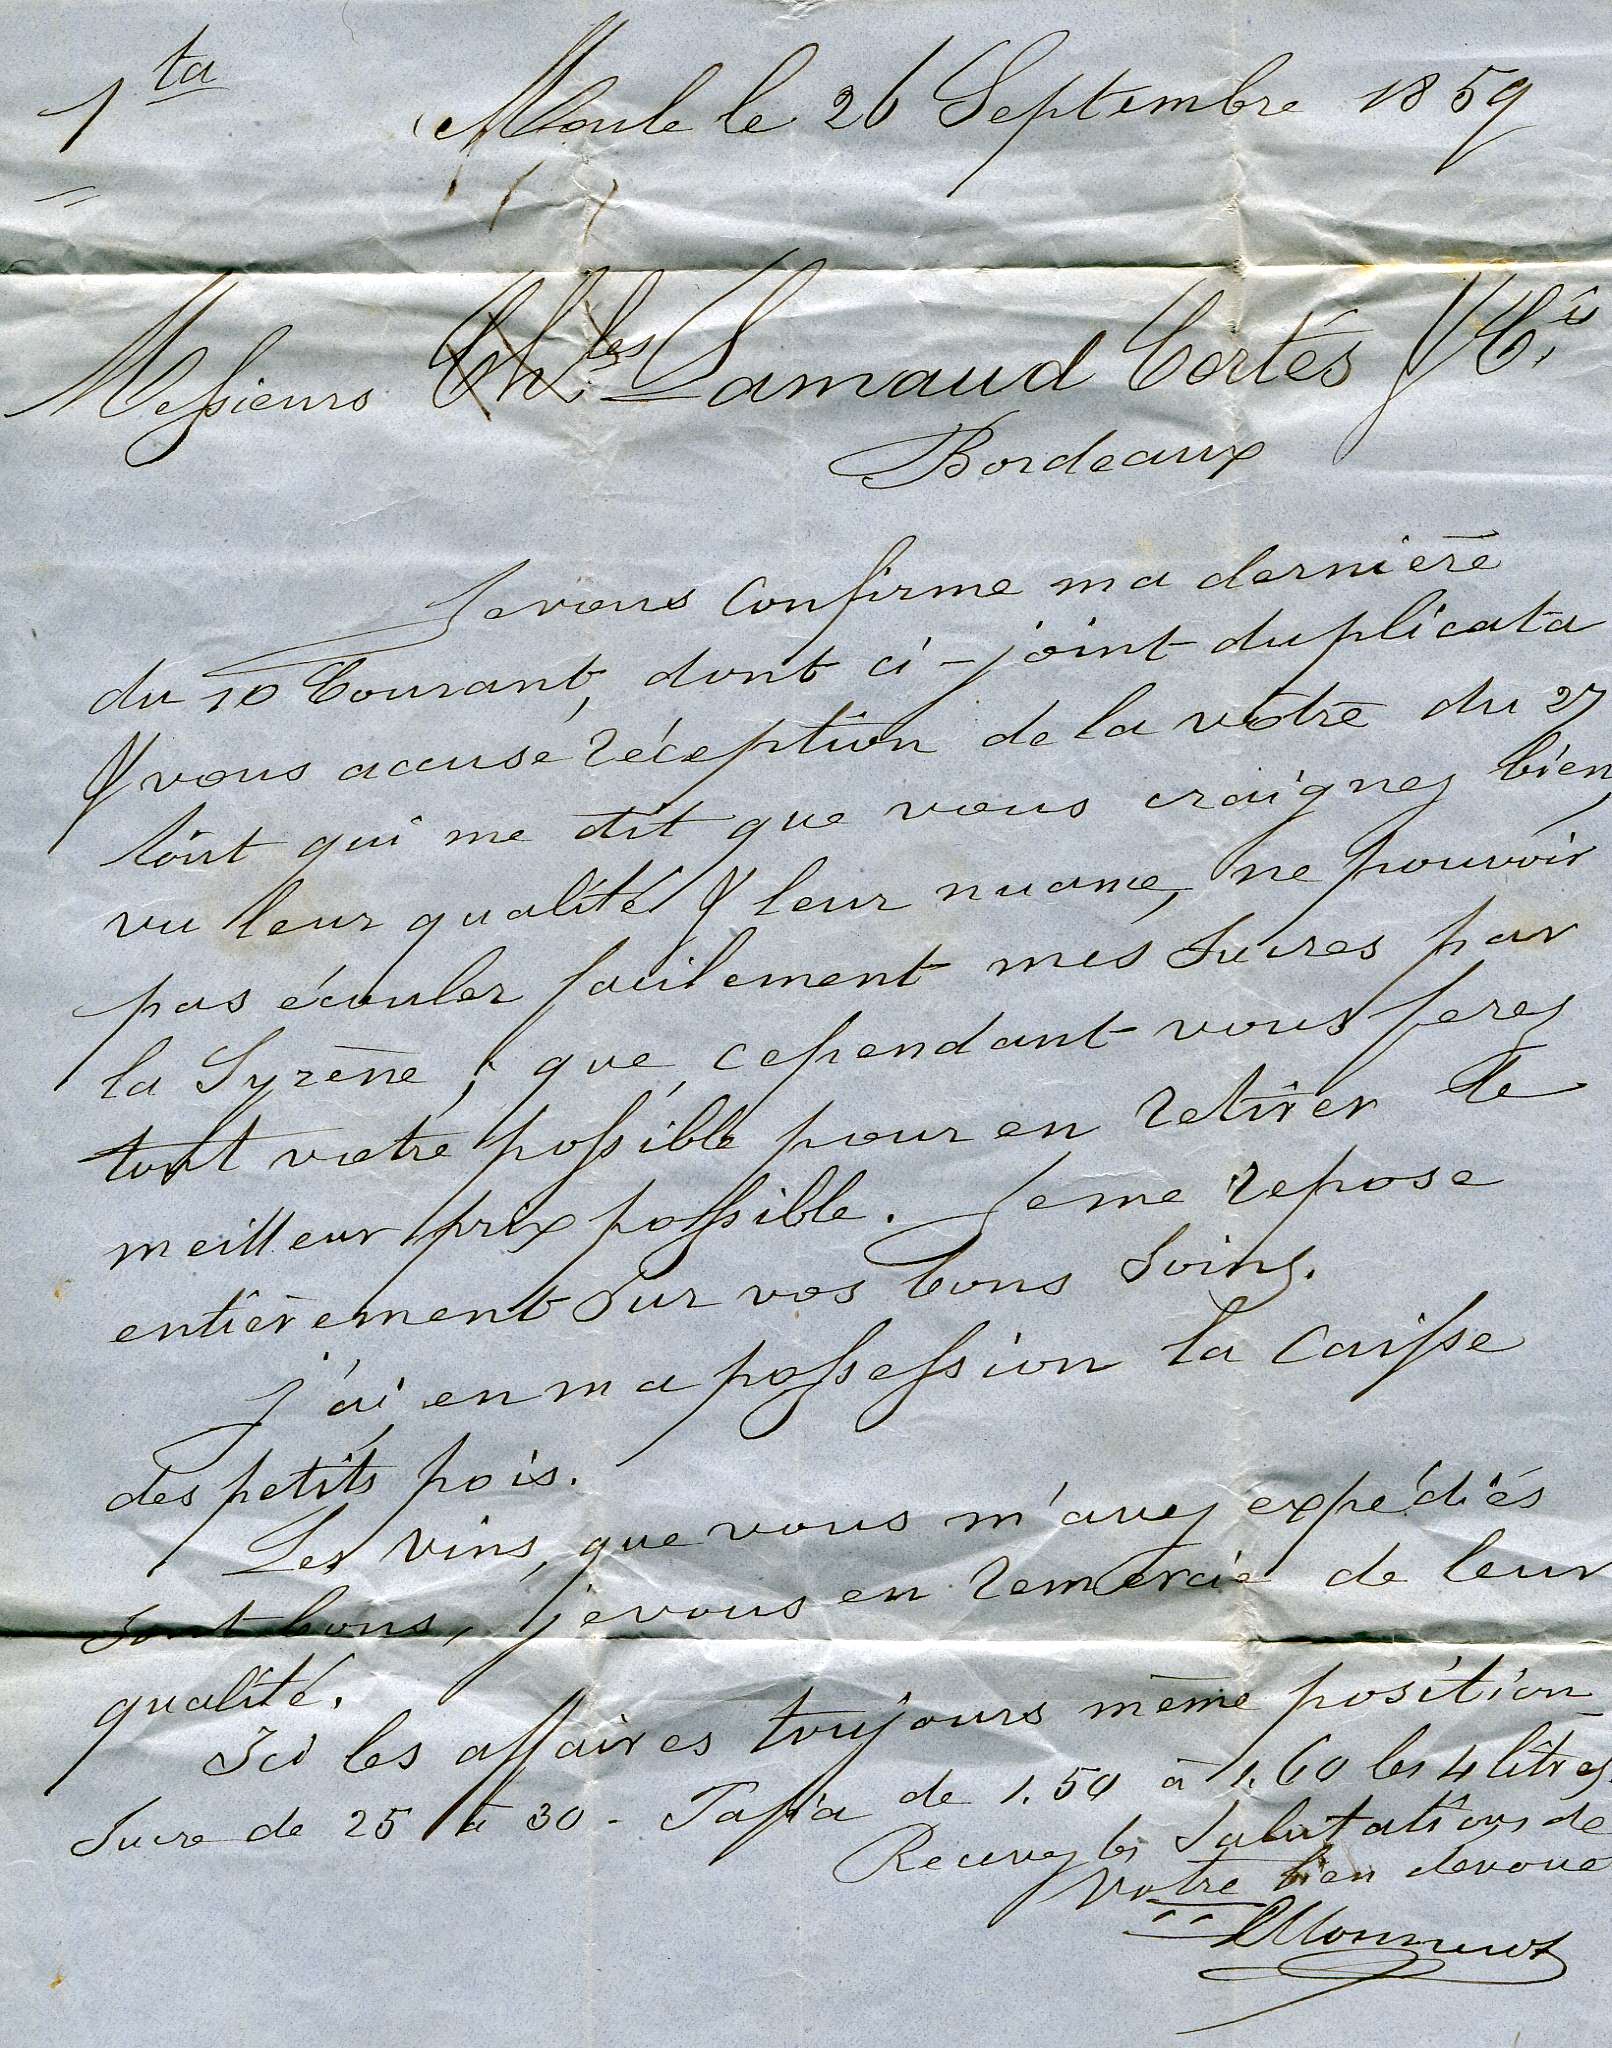 1ta Moule le 26 Septembre 1859
Messieurs Ch.les Lamaud Cortès & Cie
Bordeaux
Je vous Confirme ma dernière
du 10 Courant, dont ci-joint duplicata
& vous accuse réception de la vôtre du 27
Août qui me dit que vous craignez bien,
vu leur qualité & leur nuance, ne pouvoir
pas écouler facilement mes Sucres par
la Syrène ; que, cependant vous ferez
tout votre possible pour en retirer le
meilleur prix possible. Je me repose
entièrement Sur vos bons Soins.
J'ai en ma possession la Caisse
des petits pois.
Les vins, que vous m'avez expédiés
Sont bons, je vous en remercie de leur
qualité.
Ici les affaires toujours même position
Sucre de 25 à 30 - Tafia de 1.50 à 1.60 les 4 litres.
Recevez les Salutations de
Votre bien dévoué